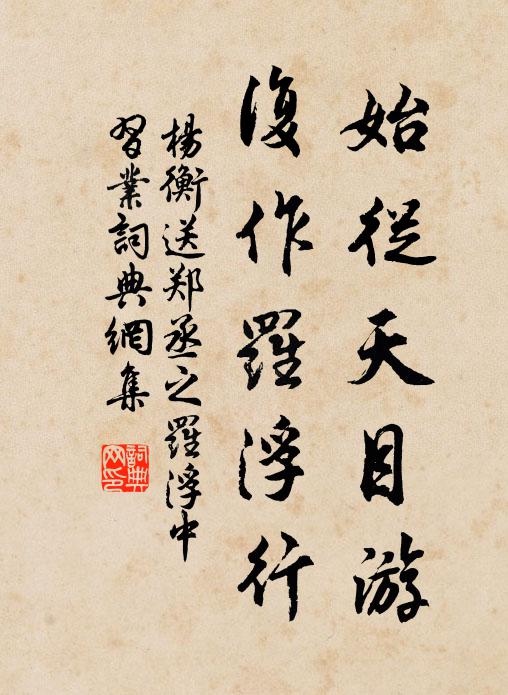 始從天目游
復作羅浮行
楊衡送郑丞之羅浮中
習業詞典網集
詞典网印